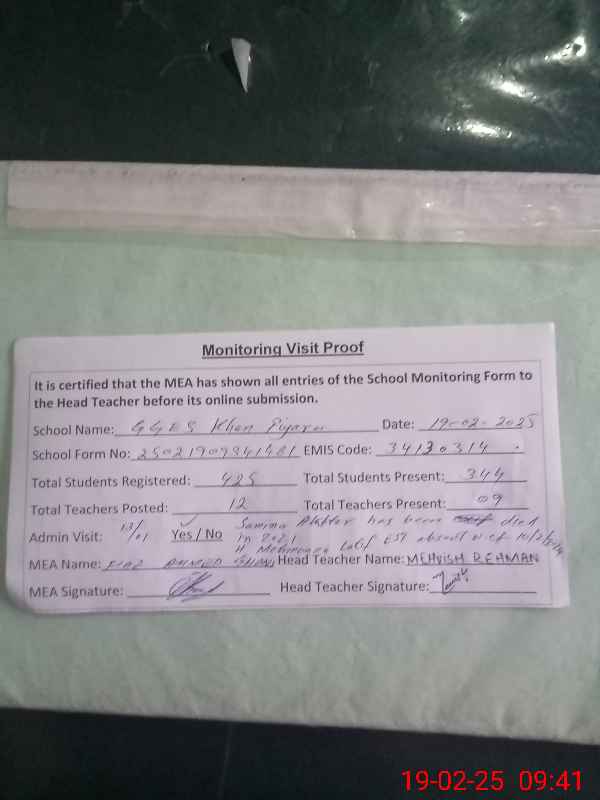 Monitoring Visit Proof
It is certified that the MEA has shown all entries of the School Monitoring Form to
the Head Teacher before its online submission.
School Name: GGES Khan Piyara Date: 19-02-2025
School Form No: EMIS Code: 34130314
Total Students Registered: 425 Total Students Present: 344
Total Teachers Posted: 12 Total Teachers Present: 09
Admin Visit: 13/01 Yes / No has been died
in 2021
EST absent w.e.f
MEA Name: AHMED Head Teacher Name: MEHVISH REHMAN
MEA Signature: Head Teacher Signature:
19-02-25 09:41